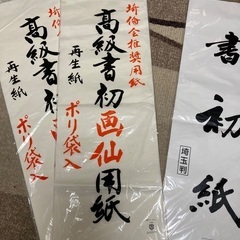 埼倫会推奨用紙
高級書初画仙用紙
再生紙
ポリ袋入
高級書初
再生紙
ポリ袋入
書初紙
埼玉判